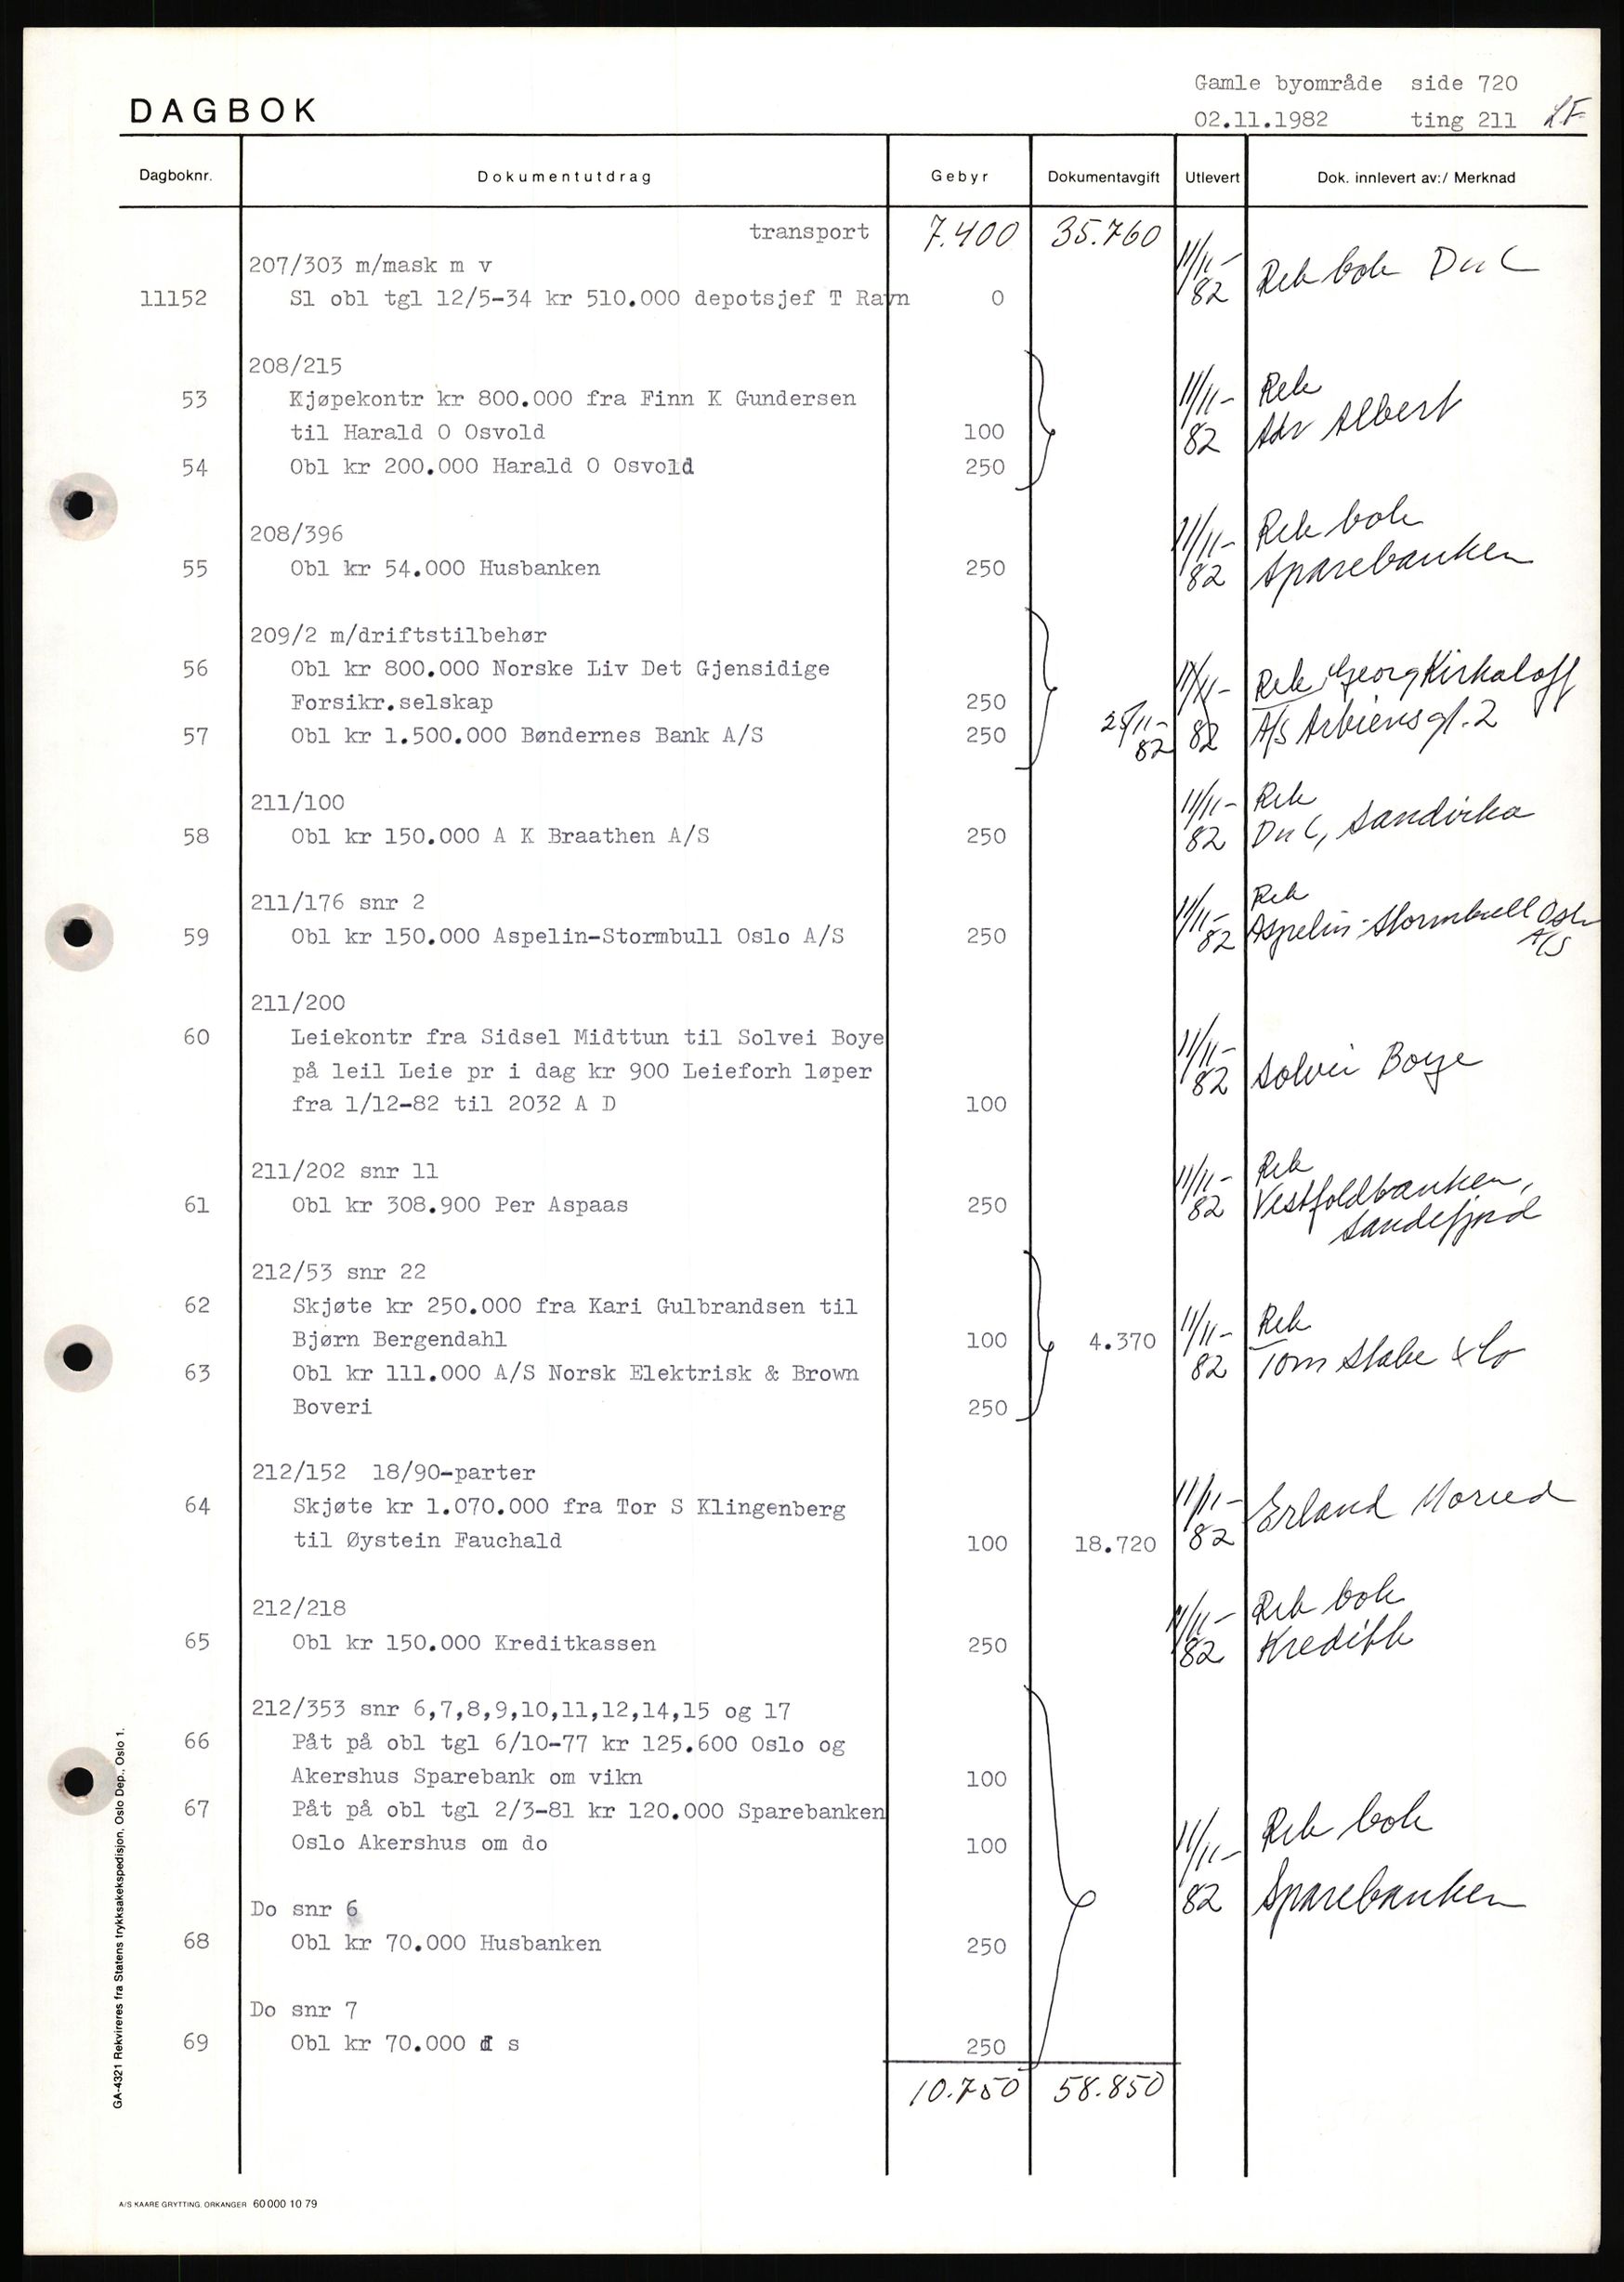 Gamle byområde side 720
DAGBOK
02.11.1982 ting 211 LF
Dagboknr. Dokumentutdrag Gebyr Dokumentavgift Utlevert Dok. innlevert av:/ Merknad
transport 7.400 35.760
207/303 m/mask m v
11152 Sl obl tgl 12/5-34 kr 510.000 depotsjef T Ravn 0 11/11-82 Rek bok DnC
208/215
53 Kjøpekontr kr 800.000 fra Finn K Gundersen 11/11- Rek
til Harald O Osvold 100 82 Adv Albert
54 Obl kr 200.000 Harald O Osvold 250
208/396 11/11- Rek bok
55 Obl kr 54.000 Husbanken 250 82 Sparebanken
209/2 m/driftstilbehør
56 Obl kr 800.000 Norske Liv Det Gjensidige 11/11- Rek Georg
Forsikr.selskap 250 25/11- A/S gt. 2
57 Obl kr 1.500.000 Bøndernes Bank A/S 250 82 82
211/100 11/11- Rek
58 Obl kr 150.000 A K Braathen A/S 250 82 DnC, Sandvika
211/176 snr 2 11/11- Rek
59 Obl kr 150.000 Aspelin-Stormbull Oslo A/S 250 82 Aspelin-Stormbull Oslo
A/S
211/200
60 Leiekontr fra Sidsel Midttun til Solvei Boye 11/11-
på leil Leie pr i dag kr 900 Leieforh løper 82 Solvei Boye
fra 1/12-82 til 2032 A D 100
211/202 snr 11 11/11- Rek
61 Obl kr 308.900 Per Aspaas 250 82 Vestfoldbanken,
Sandefjord
212/53 snr 22
62 Skjøte kr 250.000 fra Kari Gulbrandsen til 11/11- Rek
Bjørn Bergendahl 100 4.370 82 Tom Stabe & Co
63 Obl kr 111.000 A/S Norsk Elektrisk & Brown
Boveri 250
212/152 18/90-parter
64 Skjøte kr 1.070.000 fra Tor S Klingenberg 11/11- Erland
til Øystein Fauchald 100 18.720 82
212/218 11/11- Rek bok
65 Obl kr 150.000 Kreditkassen 250 82 Kreditk
212/353 snr 6,7,8,9,10,11,12,14,15 og 17
66 Påt på obl tgl 6/10-77 kr 125.600 Oslo og
Akershus Sparebank om vikn 100
67 Påt på obl tgl 2/3-81 kr 120.000 Sparebanken 11/11- Rek bok
Oslo Akershus om do 100
Do snr 6 82 Sparebanken
68 Obl kr 70.000 Husbanken 250
Do snr 7
69 Obl kr 70.000 d s 250
10.750 58.850
GA-4321 Rekvireres fra Statens trykksakekspedisjon, Oslo Dep., Oslo 1.
A/S KAARE GRYTTING. ORKANGER 60 000 10 79